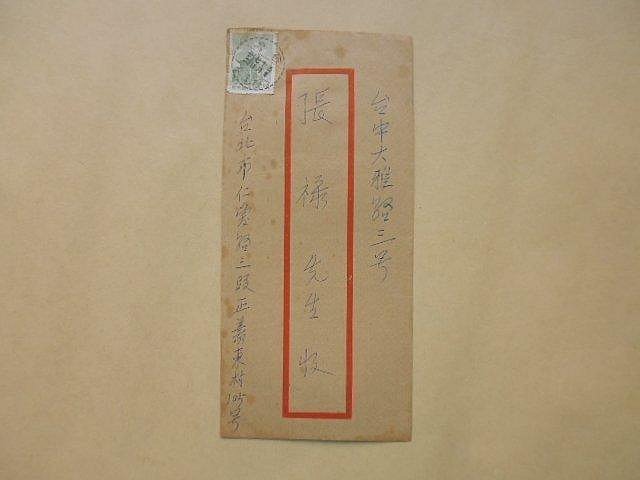 台中大雅路三号
張祿先生收
台北市仁愛路三段正義東村105号